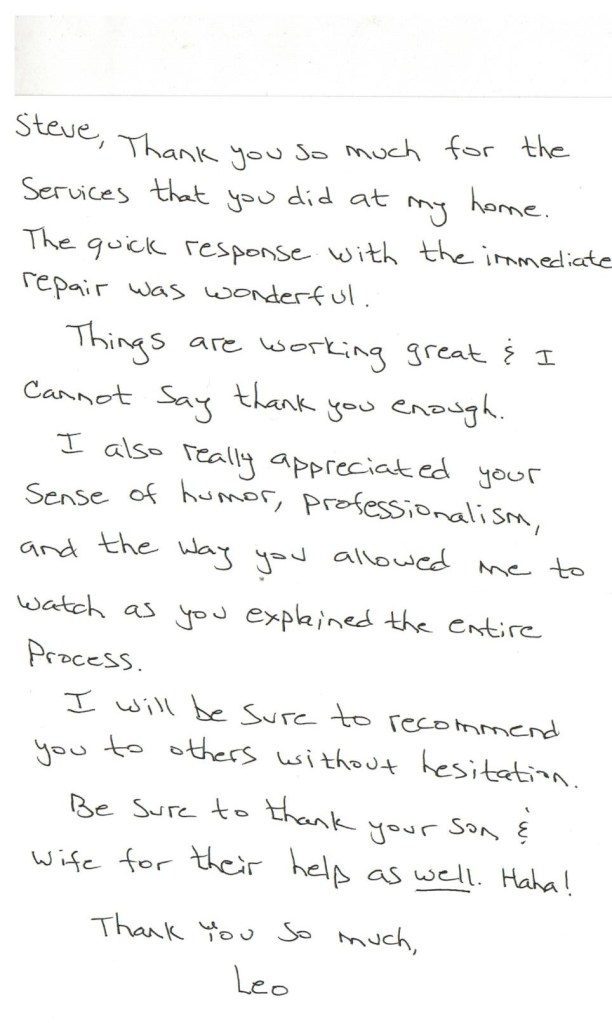 Steve, Thank you so much for the
Services that you did at my home.
The quick response with the immediate
repair was wonderful.
Things are working great & I
Cannot Say thank you enough.
I also really appreciated your
Sense of humor, professionalism,
and the way you allowed me to
watch as you explained the entire
Process.
I will be sure to recommend
you to others without hesitation.
Be sure to thank your son &
wife for their help as well. Haha!
Thank You so much,
Leo